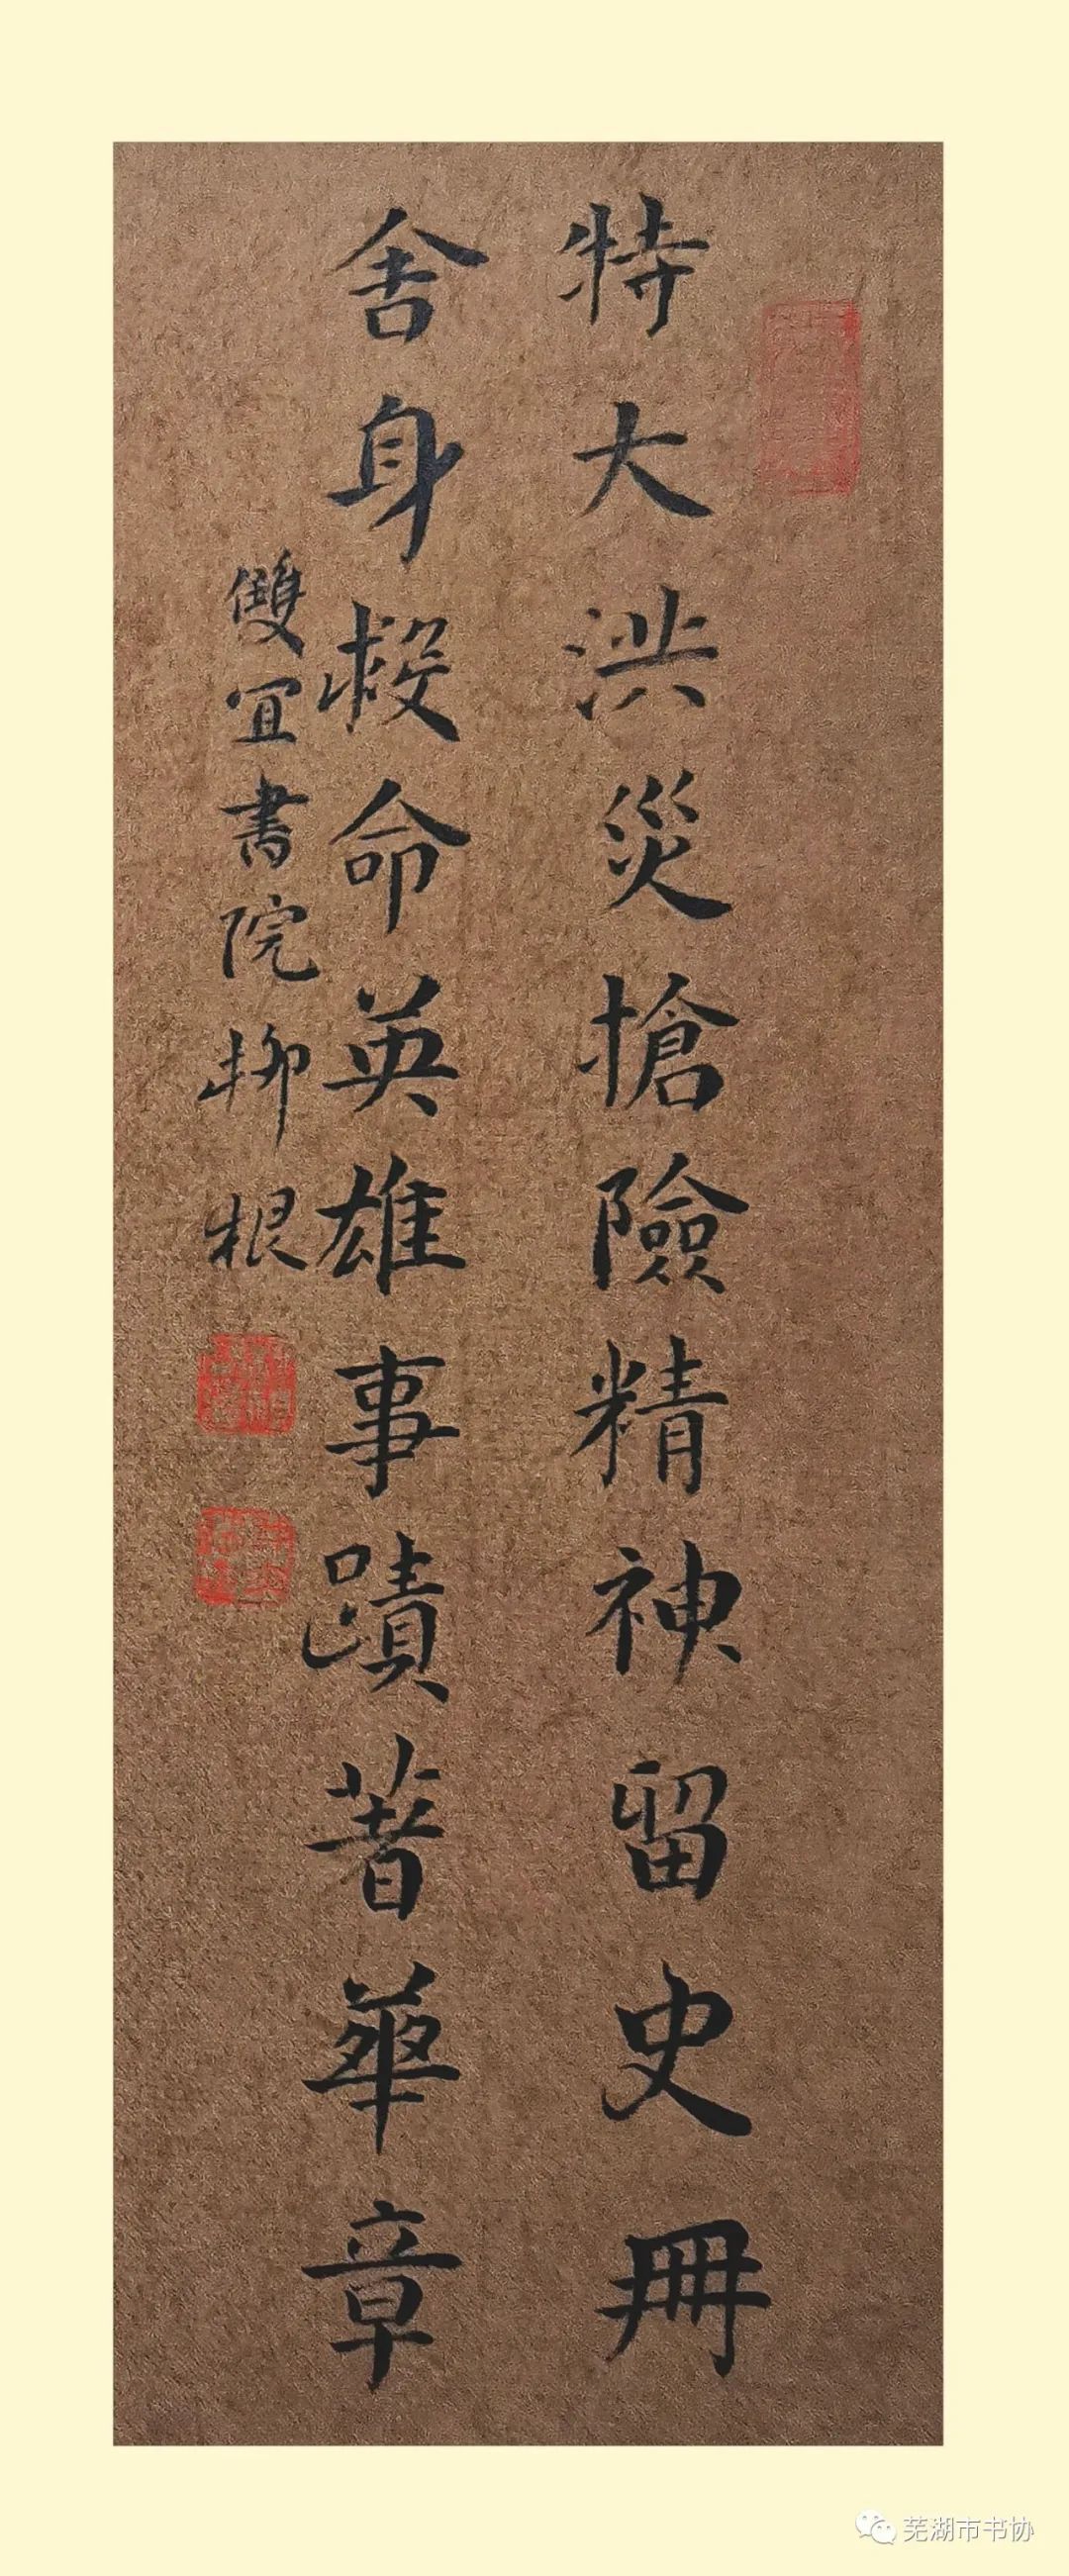 特大洪災搶險精神留史冊
舍身救命英雄事蹟著華章
雙宜書院柳根
芜湖市书协